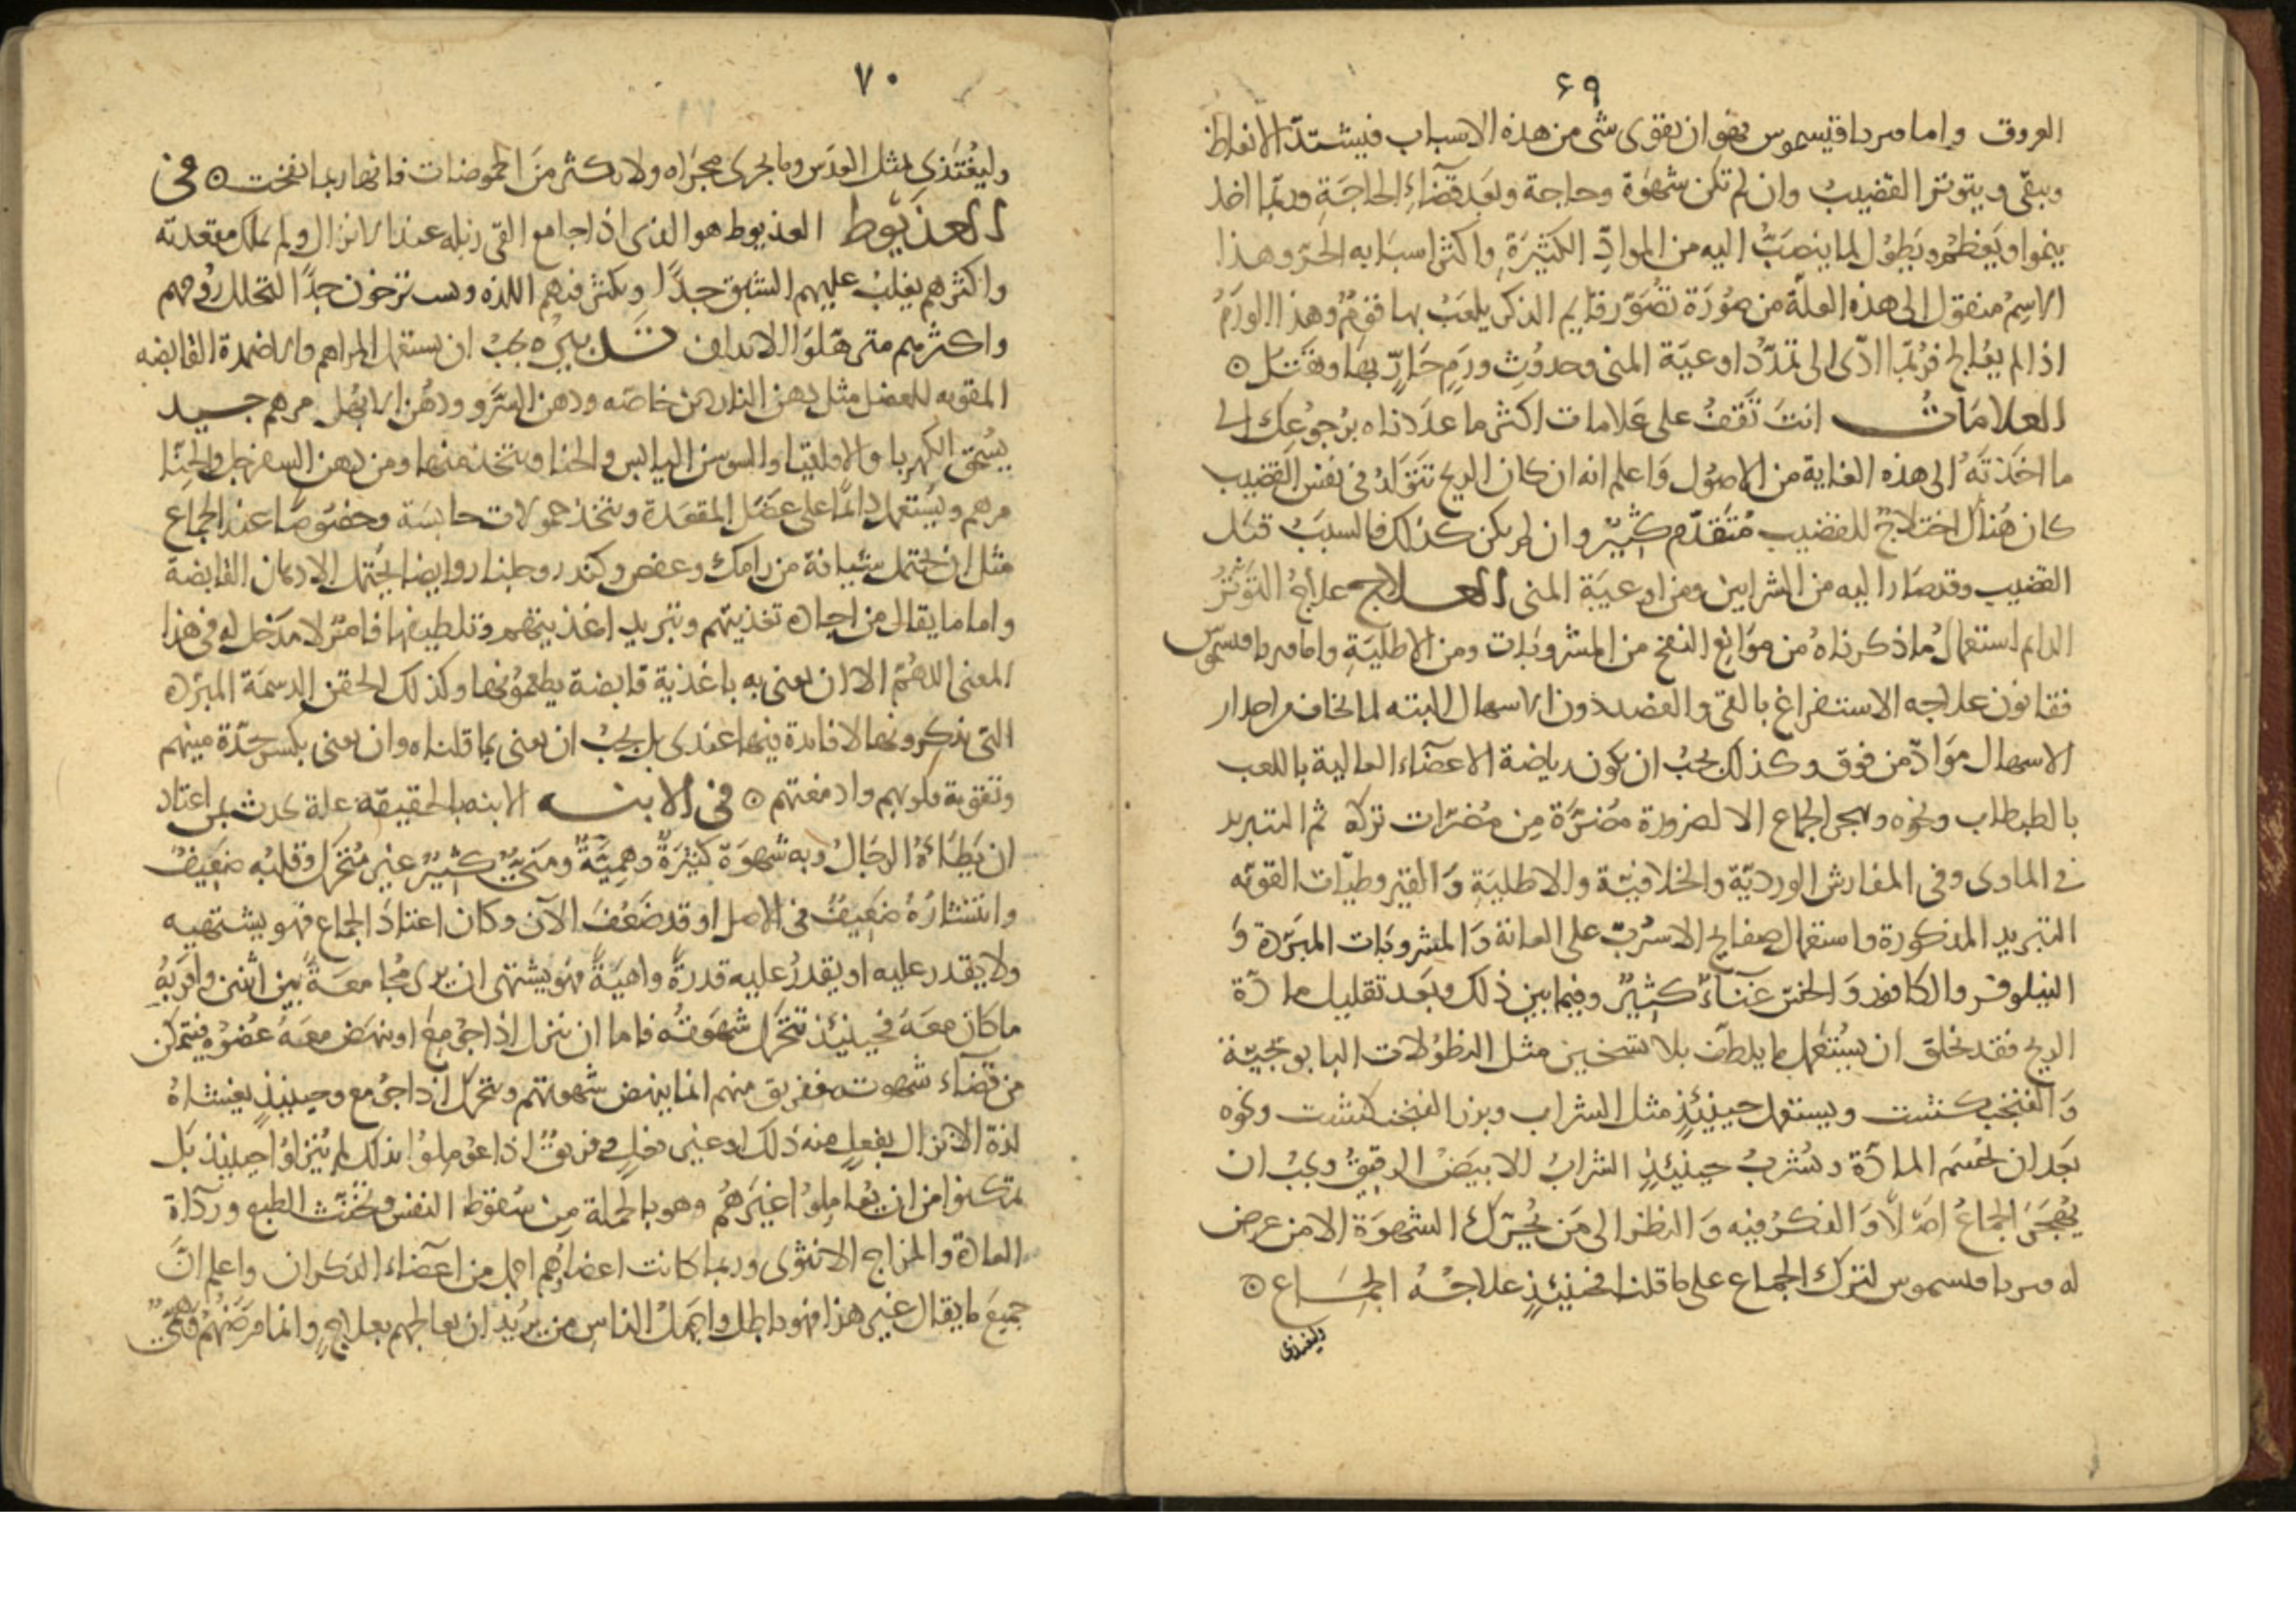 ٦٩
العروق واما فرياقيسموس فهو ان يقوى شى من هذه الاسباب فيشتدّ الانعاظ
ويبقى ويتوتر القضيب وان لم تكن شهوة وحاجة وبعد قضآء الحاجة وربّما اخذ
ينموا ويعظم ويطول لما ينصبّ اليه من الموادّ الكثيرة واكثر اسبابه الحرّ وهذا
الاسم منقول الى هذه العلّة من صورة تصوّر قايم الذكر يلعب بها قوم وهذا الورم
اذا لم يعالج فربّما ادّى الى تمدّد اوعية المنى وحدوث ورم حارّ بها وقتل ۞
العلامات انت تقف على علامات اكثر ما عددناه برجوعك الى
ما اخذته الى هذه الغاية من الاصول واعلم انه ان كان الريح تتولد فى نفس القضيب
كان هناك اختلاج للقضيب متقدّم كثير وان لم يكن كذلك فالسبب قبل
القضيب وقد صار اليه من الشرايين ومن اوعية المنى العلاج علاج التوتر
الدايم استعمال ما ذكرناه من موانع النفخ من المشروبات ومن الاطلية واما فرياقسموس
فقانون علاجه الاستفراغ بالقى والفصد دون الاسهال البته لما يخاف من احدار
الاسهال موادّ من فوق وكذلك يجب ان يكون رياضة الاعضآء العالية باللعب
بالطبطاب ونحوه ويهجر الجماع الا لضرورة مضرّة من مضرّات تركه ثم التبريد
فى المآوى وفى المفارش الورديّة والخلافيّة والاطلية والقيروطيّات القويّه
التبريد المذكورة واستعمال صفايح الاسرب على العانة والمشروبات المبرّدة و
النيلوفر والكافور والخسّ غنآء كثير وفيما بين ذلك وبعد تقليل مادّة
الريح فقد يخلق ان يستعمل ما يلطّف بلا تسخين مثل النطولات البابونجيّة
والفنجنكشت ويستعمل حينئذ مثل السّراب وبزر الفنجنكشت ونحوه
بعد ان تحسم المادّة ويشرب حينئذ الشراب الابيض الرقيق ويجب ان
يهجر الجماع اصلاً والفكر فيه والنظر الى من يحرّك الشهوة الا من عرض
له فرياقسموس لترك الجماع على ما قلنا فحينئذ علاجه الجماع ۞
وليغتذى
٧٠
وليغتذى بمثل العدس وما يجرى مجراه ولا يكثر من الحموضات فانها ربما نفخت ۞ فى
العذيوط العذيوط هو الذى اذا جامع القى زبله عند الانزال ولم يملك مقعدته
واكثرهم يغلب عليهم الشبق جدّاً ويكثر فيهم اللذه ويسترخون جدّاً لتحلل روحهم
واكثرهم مترهّلوا الابدان تدبيره يجب ان يستعمل المراهم والاضمدة القابضه
المقويه للعضل مثل دهن الناردين خاصّه ودهن السّرو ودهن الابهل مرهم جيد
يسحق الكهربا والاقاقيا والسوسن اليابس والحنا ويتخذ منها ومن دهن السفرجل والحنّا
مرهم ويستعمل دائماً على عضل المقعدة ويتخذ حمولات حابسة وخصوصاً عند الجماع
مثل ان يحتمل شيافة من رامك وعفص وكندر وجلنار وايضا يحتمل الادهان القابضة
واما ما يقال من اجادة تغذيتهم وتبريد اغذيتهم وتلطيفها فامر لا مدخل له فى هذا
المعنى اللهمّ الا ان يعنى به باغذية قابضة يطعمونها وكذلك الحقن الدسمة المبرّدة
التى يذكرونها لا فائدة فيها عندى بل يجب ان يعنى بما قلناه وان يعنى بكسر حدّة منيهم
وتقوية قلوبهم وادمغتهم ۞ فى الابنه الابنه بالحقيقة علة يحدث بمن اعتاد
ان يطأه الرجال وبه شهوة كثيرة وهميّة ومنىّ كثير غير متحرّك وقلبه ضعيف
وانتشاره ضعيف فى الاصل او قد ضعف الآن وكان اعتاد الجماع فهو يشتهيه
ولا يقدر عليه او يقدر عليه قدرة واهية فهو يشتهى ان يرى مجامعة بين اثنين واقربه
ما كان معه فحينئذ تتحرّك شهوته فاما ان ينزل اذا جومع او ينهض معه عضوه فيتمكن
من قضآء شهوته ففريق منهم انما ينهض شهوتهم ويتحرك اذا جومع وحينئذ يغشاه
لذة الانزال بفعل منه ذلك او بغير فعل وفريق اذا عوملوا بذلك لم ينزلوا حينئذ بل
تمكنوا من ان يعاملوا غيرهم وهو بالجملة من سقوط النفس وتخنّث الطبع وردآة
العادة والمزاج الانثوى وربما كانت اعضاؤهم اجمل من اعضاء الذكران واعلم انّ
جميع ما يقال غير هذا فهو باطل واجهل الناس من يريد ان يعالجهم بعلاج وانما مرضهم وهمىّ